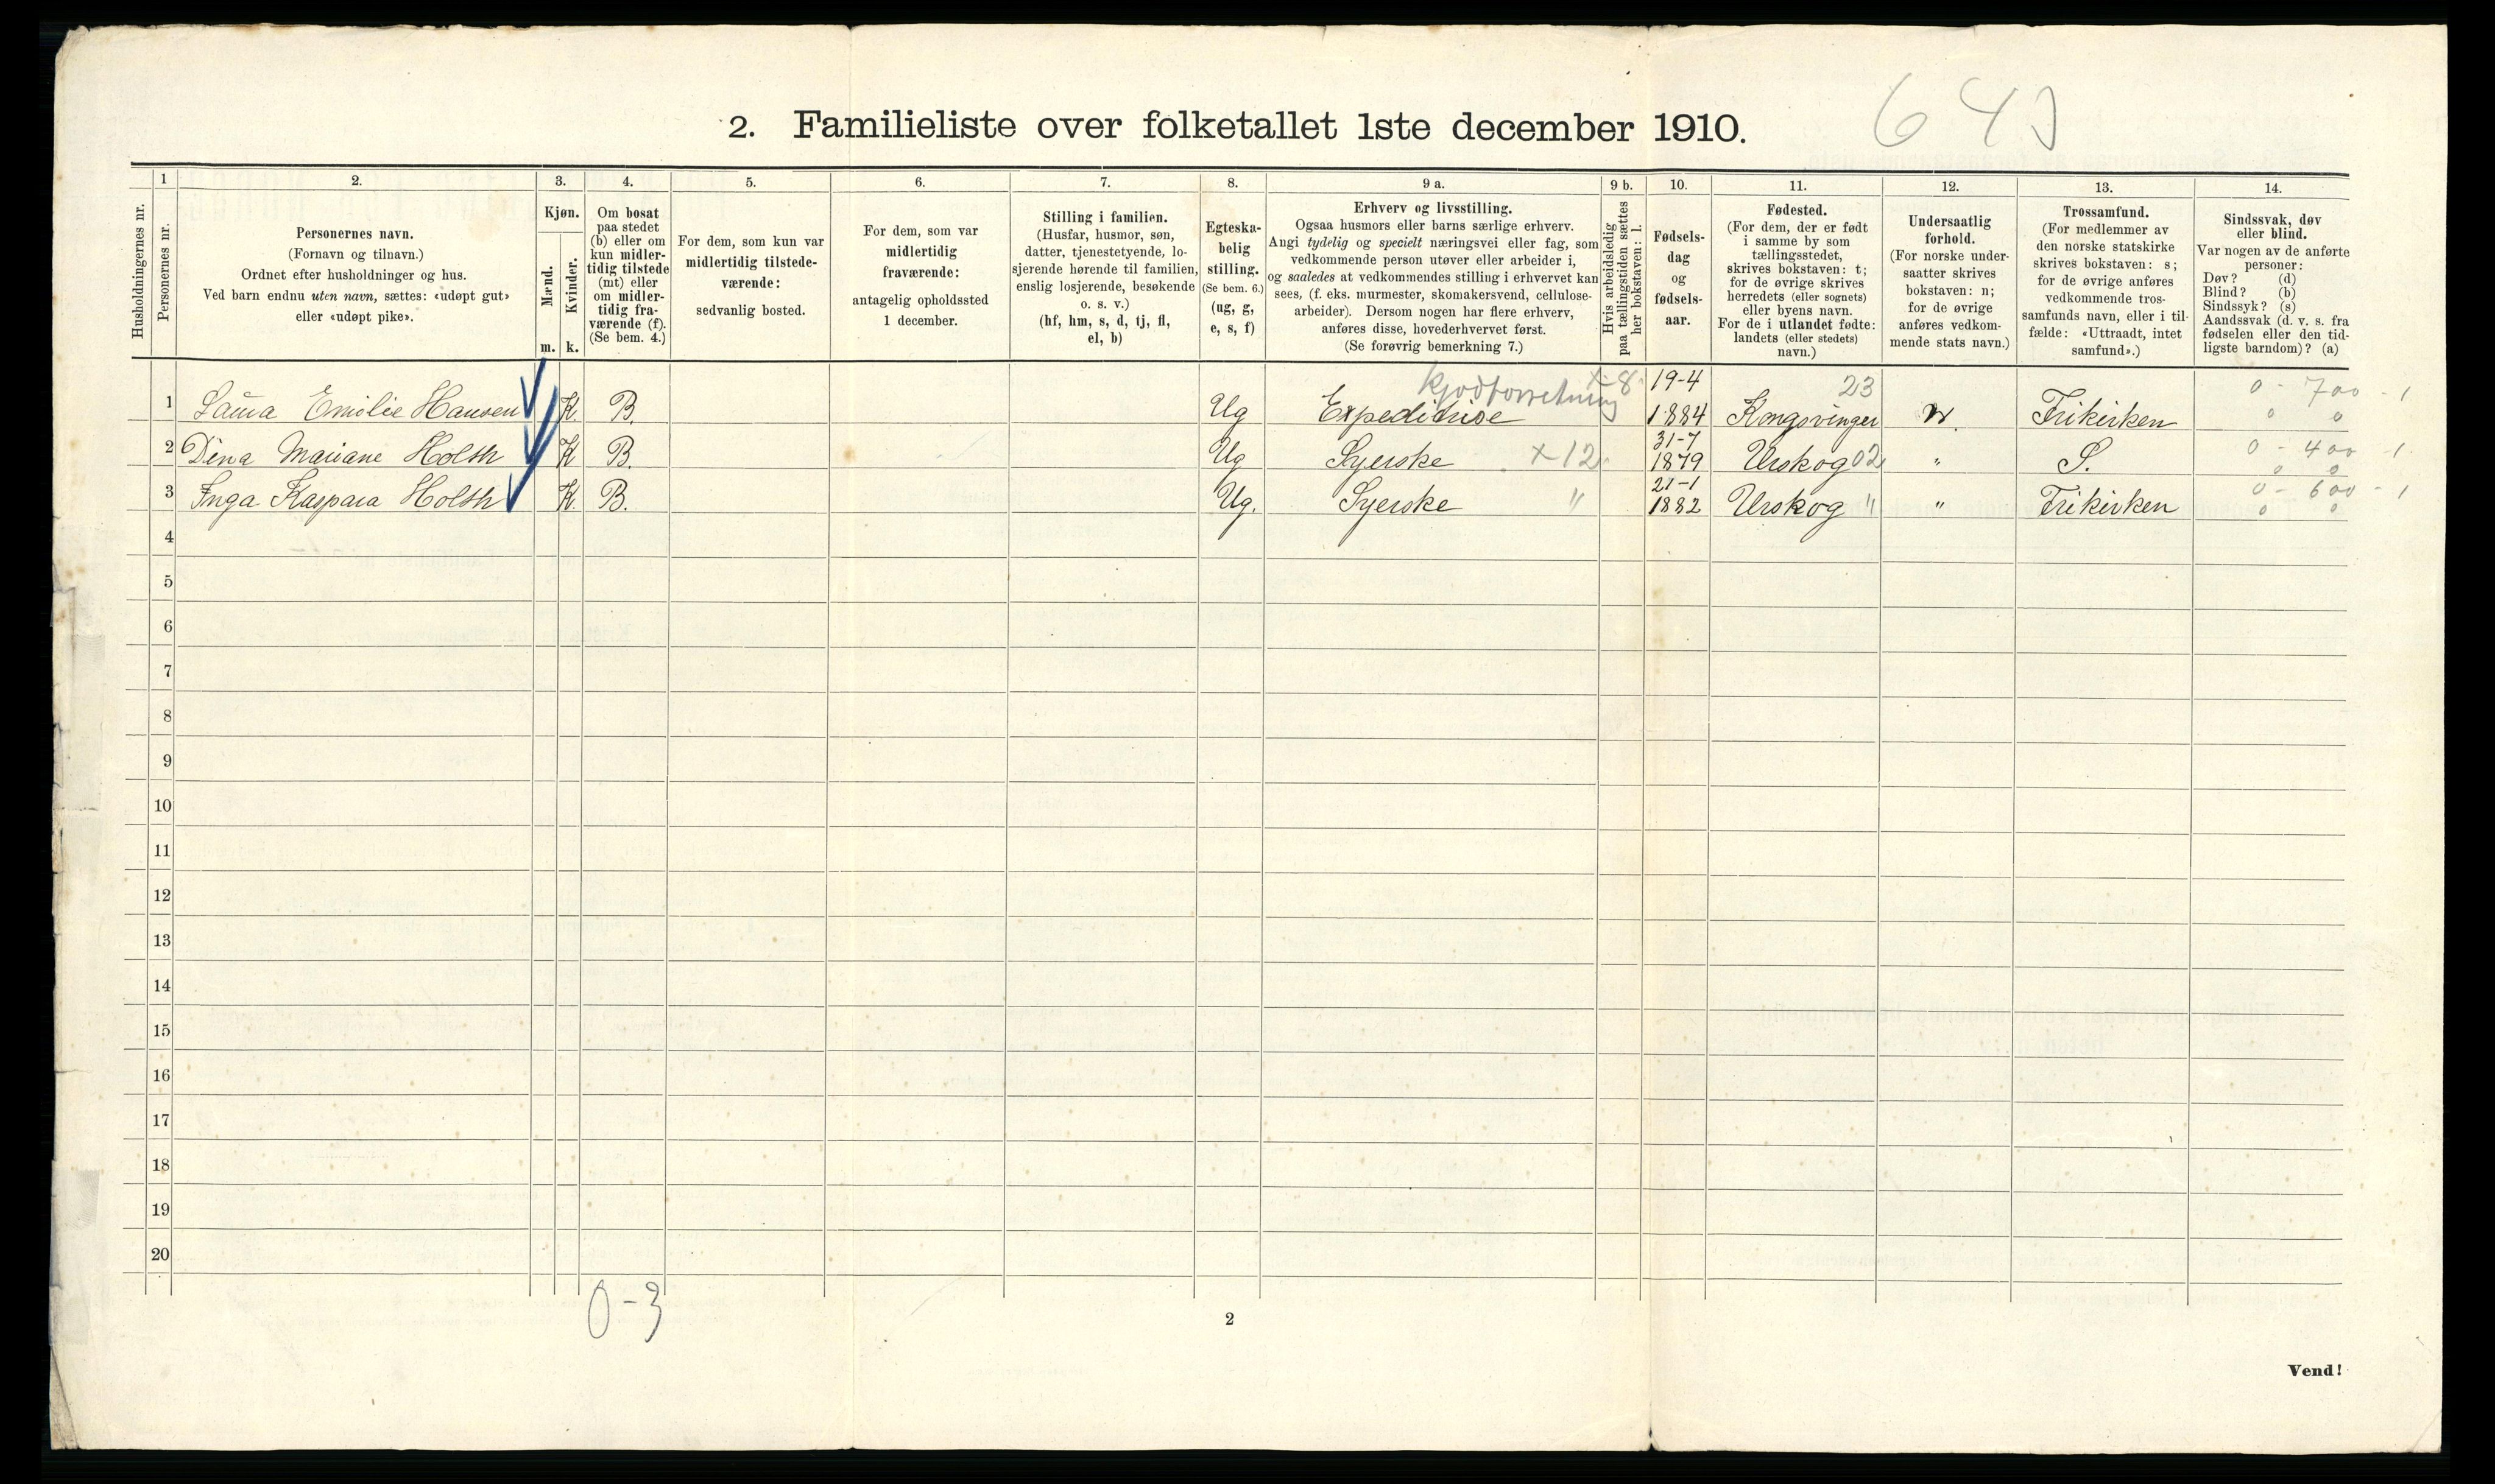 2. Familieliste over folketallet 1ste december 1910.
1 2. 3. 4. 5. 6. 7. 8. 9 a. 9 b. 10. 11. 12. 13. 14.
Husholdningernes nr.
Personernes nr.
Personernes navn.
(Fornavn og tilnavn.)
Ordnet efter husholdninger og hus.
Ved barn endnu uten navn, sættes: «udøpt gut»
eller «udøpt pike».
Kjøn.
Mænd.
Kvinder.
m. k.
Om bosat
paa stedet
(b) eller om
kun midler-
tidig tilstede
(mt) eller
om midler-
tidig fra-
værende (f).
(Se bem. 4.)
For dem, som kun var
midlertidig tilstede-
værende:
sedvanlig bosted.
For dem, som var
midlertidig
fraværende:
antagelig opholdssted
1 december.
Stilling i familien.
(Husfar, husmor, søn,
datter, tjenestetyende, lo-
sjerende hørende til familien,
enslig losjerende, besøkende
o. s. v.)
(hf, hm, s, d, tj, fl,
el, b)
Egteska-
belig
stilling.
(Se bem. 6.)
(ug, g,
e, s, f)
Erhverv og livsstilling.
Ogsaa husmors eller barns særlige erhverv.
Angi tydelig og specielt næringsvei eller fag, som
vedkommende person utøver eller arbeider i,
og saaledes at vedkommendes stilling i erhvervet kan
sees, (f. eks. murmester, skomakersvend, cellulose-
arbeider). Dersom nogen har flere erhverv,
anføres disse, hovederhvervet først.
(Se forøvrig bemerkning 7.)
Hvis arbeidsledig
paa tællingstiden sættes
her bokstaven: l.
Fødsels-
dag
og
fødsels-
aar.
Fødested.
(For dem, der er født
i samme by som
tællingsstedet,
skrives bokstaven: t;
for de øvrige skrives
herredets (eller sognets)
eller byens navn.
For de i utlandet fødte:
landets (eller stedets)
navn.)
Undersaatlig
forhold.
(For norske under-
saatter skrives
bokstaven: n;
for de øvrige
anføres vedkom-
mende stats navn.)
Trossamfund.
(For medlemmer av
den norske statskirke
skrives bokstaven: s;
for de øvrige anføres
vedkommende tros-
samfunds navn, eller i til-
fælde: «Uttraadt, intet
samfund».)
Sindssvak, døv
eller blind.
Var nogen av de anførte
personer:
Døv? (d)
Blind? (b)
Sindssyk? (s)
Aandssvak (d. v. s. fra
fødselen eller den tid-
ligste barndom)? (a)
kjødforretning x-8 19-4 23 0 - 700 - 1
1 Laura Emilie Hansen K. B. Ug Expeditrise 1884 Kongsvinger N. Frikirken 0 0
31-7 0 - 400 - 1
2 Dina Mariane Holth K B. Ug Syerske x 12 1879 Urskog 02 " S. 0 0
21-1 0 - 600 - 1
3 Inga Kaspara Holth K. B. Ug. Syerske " 1882 Urskog " " Frikirken 0 0
4
5
6
7
8
9
10
11
12
13
14
15
16
17
18
19
20
0-3
2
Vend!